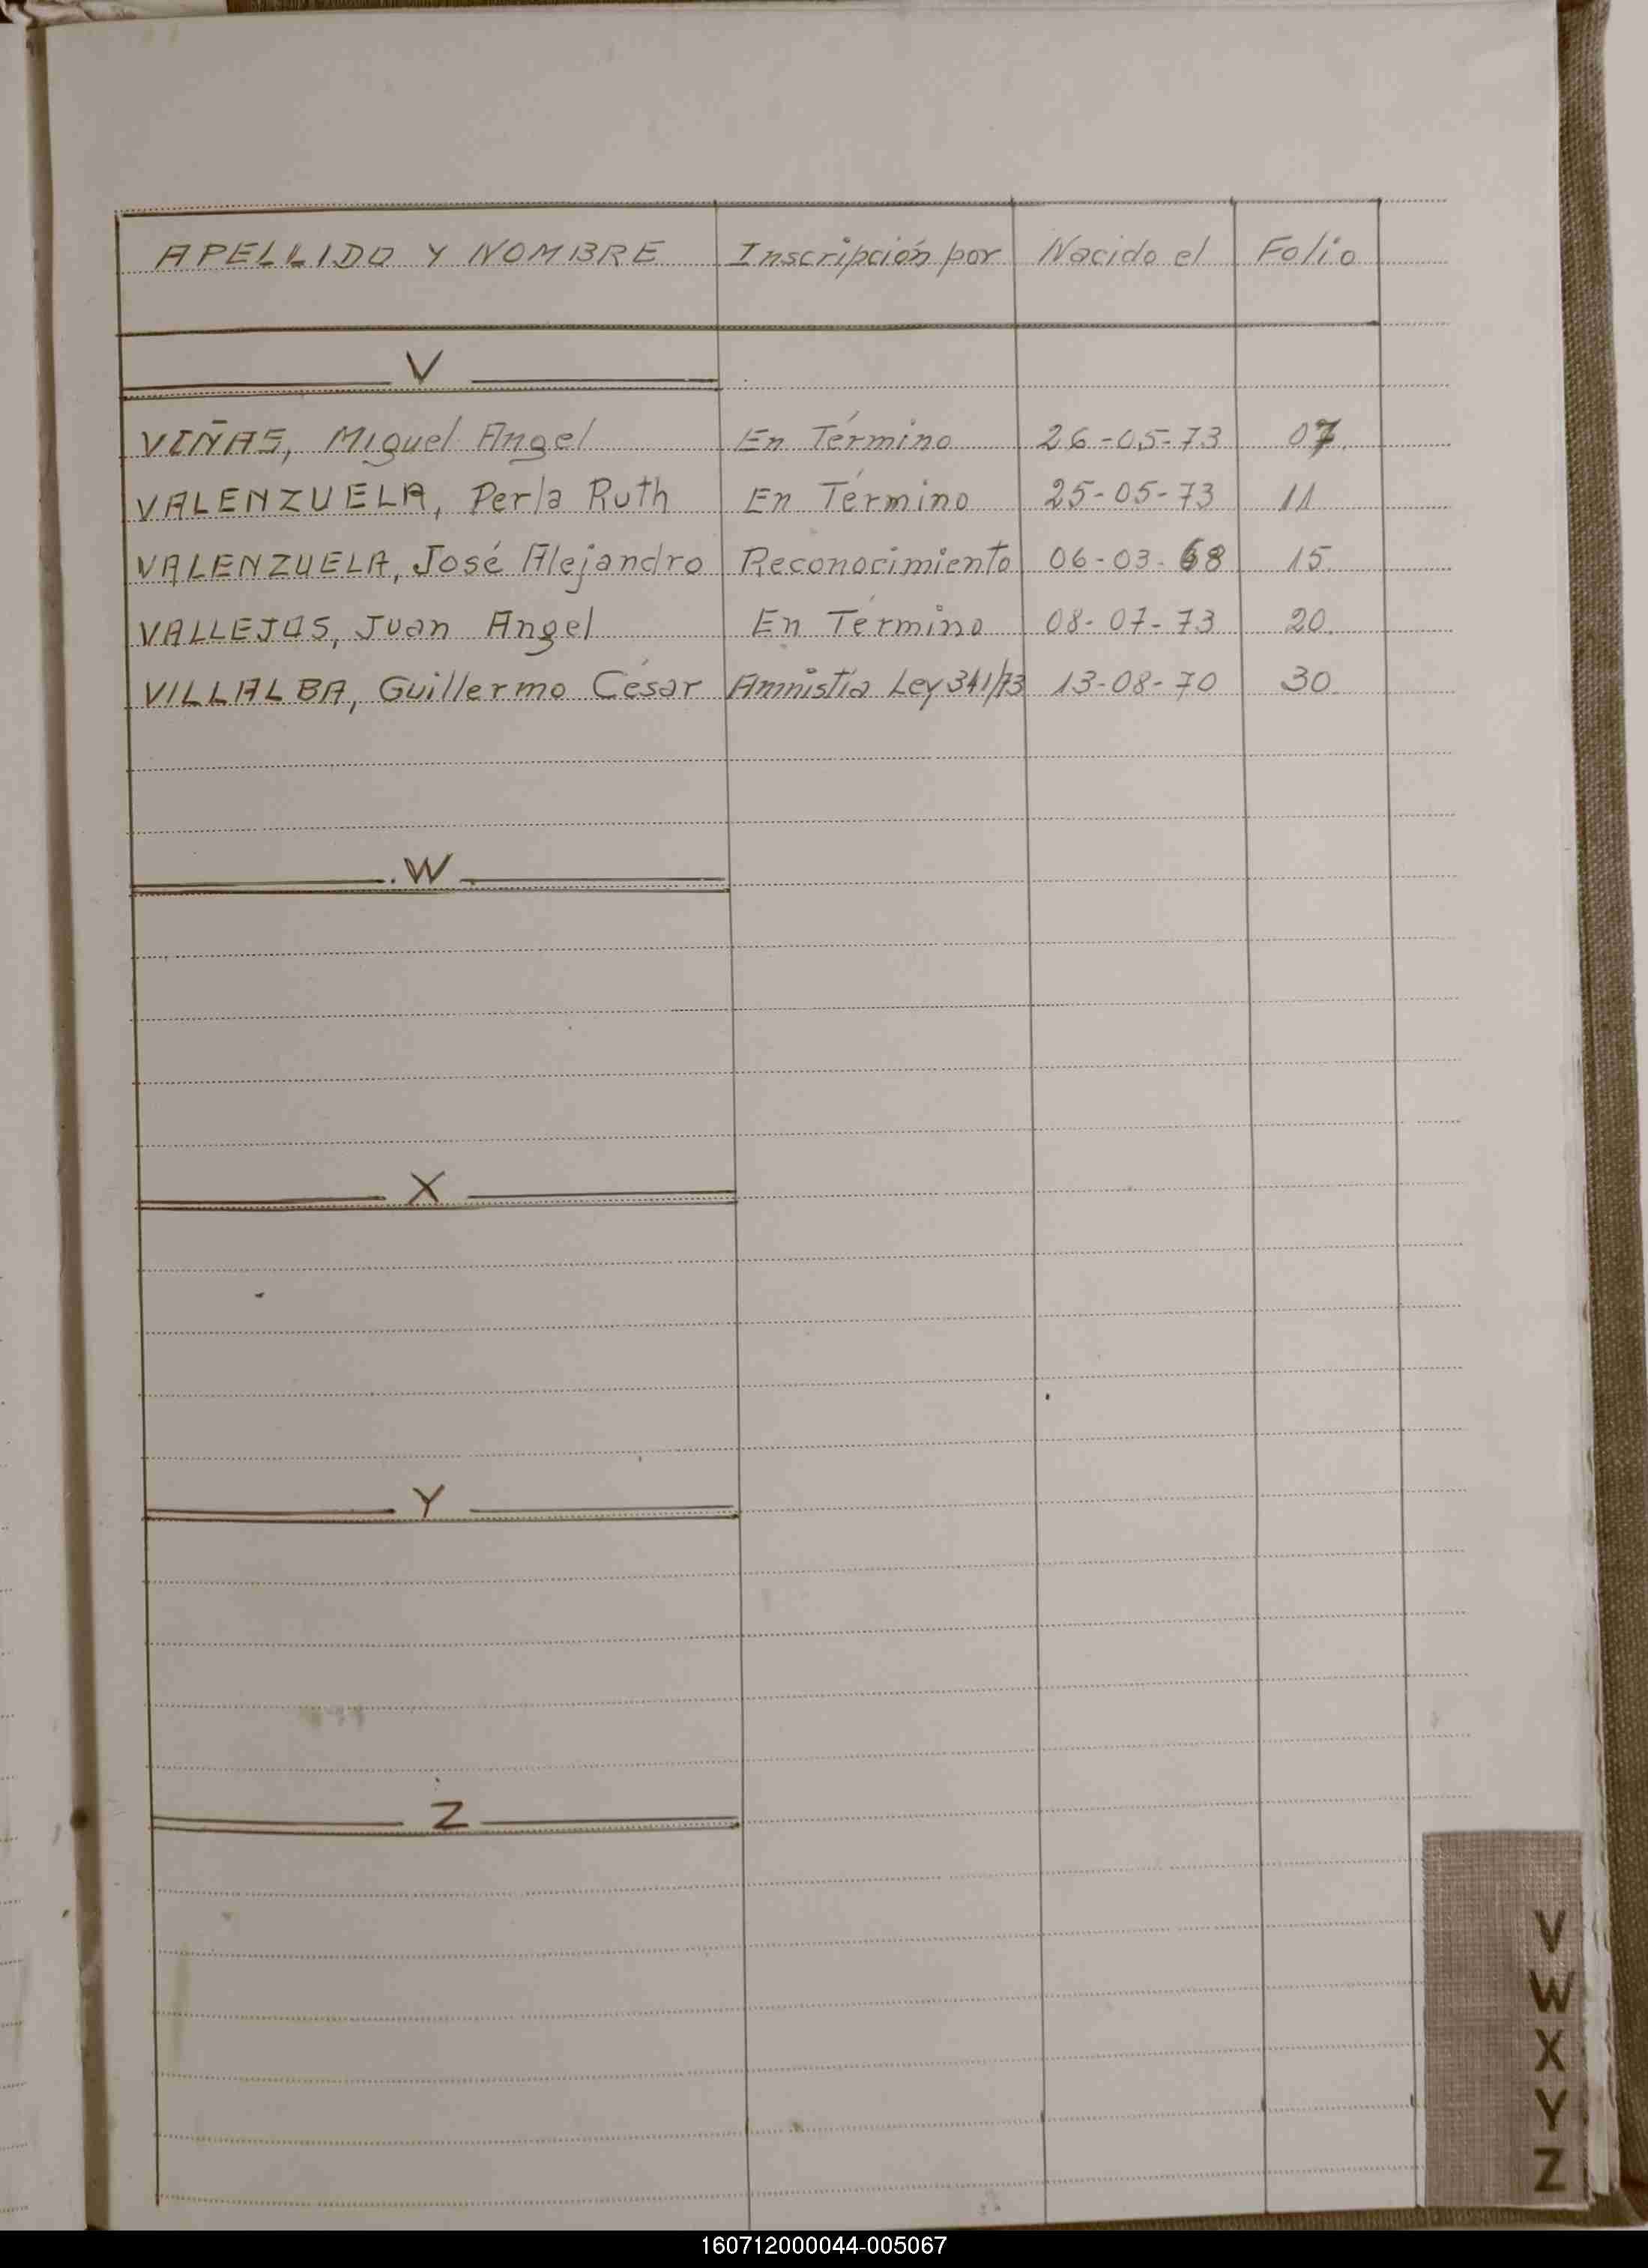 APELLIDO Y NOMBRE Inscripción por Nacido el Folio
V
VIÑAS, Miguel Angel En Término 26-05-73 07.
VALENZUELA, Perla Ruth En Término 25-05-73 11
VALENZUELA, José Alejandro Reconocimiento 06-03-68 15.
VALLEJOS, Juan Angel En Término 08-07-73 20.
VILLALBA, Guillermo César Amnistía Ley 341/73 13-08-70 30
W
X
Y
Z
V
W
X
Y
Z
160712000044-005067